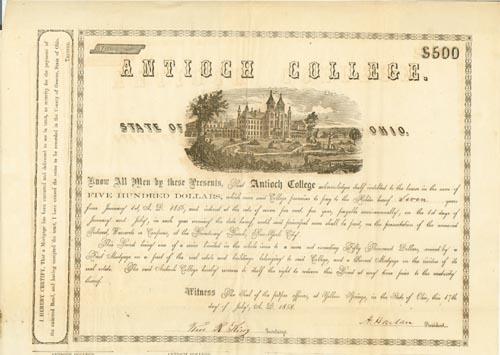 $500
ANTIOCH COLLEGE.
STATE OF OHIO.
Know All Men by these Presents, That Antioch College acknowledges itself indebted to the bearer in the sum of
FIVE HUNDRED DOLLARS, which sum said College promises to pay to the Holder hereof, Seven years
from January 1st A. D. 18 and interest at the rate of seven per cent. per year, payable semi-annually, on the 1st days of
January and July, in each year ensuing the date hereof until said principal sum shall be paid, on the presentation of the annexed
Interest Warrants or Coupons, at the Bank, New-York City.
This Bond being one of a series limited in the whole issue to a sum not exceeding Fifty Thousand Dollars, secured by a
First Mortgage on a part of the real estate and buildings belonging to said College, and a Second Mortgage on the residue of its
real estate. The said Antioch College hereby reserves to itself the right to redeem this Bond at any time prior to the maturity
hereof.
Witness The Seal of the proper officers, at Yellow Springs, in the State of Ohio, this 1st day
of July, A. D. 1858.
Secretary.
A. Harlan President.
I HEREBY CERTIFY, That a Mortgage has been executed and delivered to me in trust, to security for the payment of
the annexed Bond, and having accepted the trust, I have caused the same to be recorded in the County of Greene, State of Ohio.
Trustee.